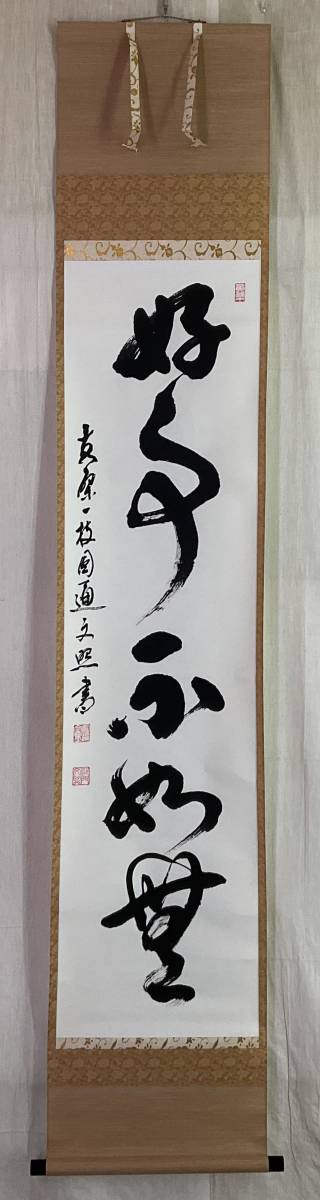 好事不如無
一枝圓通文照書